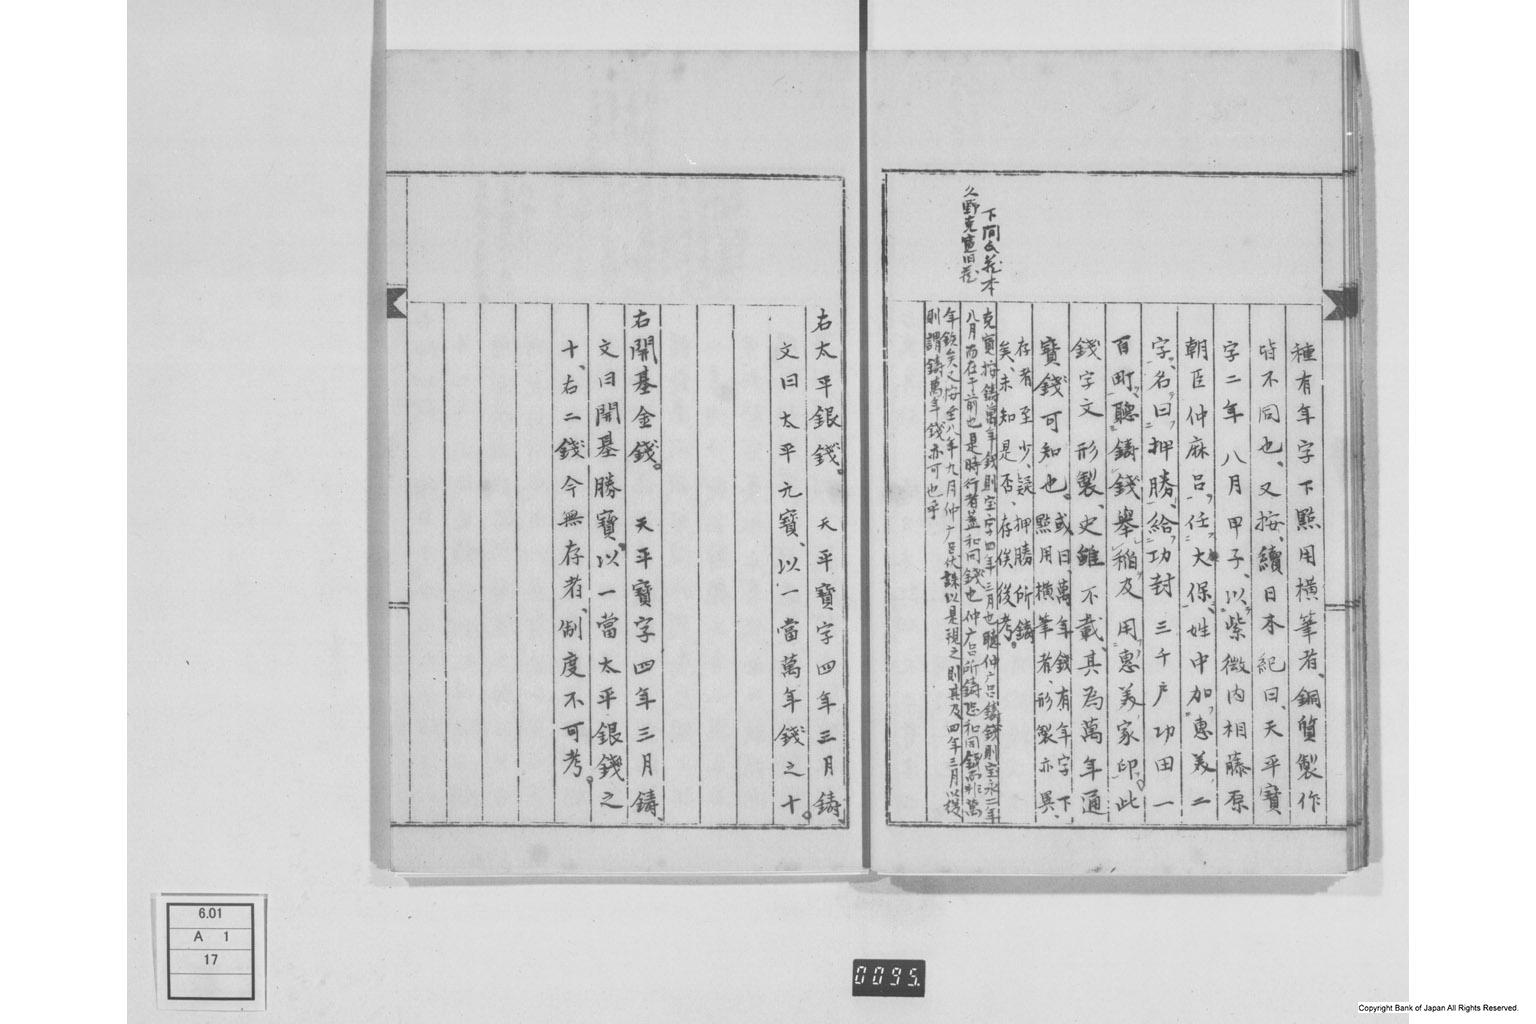 種有年字下點用橫筆者、銅質製作
皆不同也、又按、續日本紀曰、天平寶
字二年八月甲子、以紫微內相藤原
朝臣仲麻呂、任大保、姓中加惠美二
字、名曰押勝、給功封三千戶功田一
百町、聽鑄錢舉稻及用惠美家印、此
錢字文形製、史雖不載、其為萬年通
寶錢可知也。或曰、萬年錢有年字下
點用橫筆者、形製亦異、
存者至少、疑押勝所鑄
矣、未知是否、存俟後考。
下間氏花本
久野克寬旧花
克寬按鑄萬年錢則宝字四年三月也聽仲广呂鑄錢則宝二年
八月而在于前也是時行者蓋和同錢也仲广呂所鑄和同錢而非萬
年錢矣又按至八年九月仲广呂伏誅以是視之則其及四年三月以後
則謂鑄萬年錢亦可也乎
右太平銀錢。天平寶字四年三月鑄、
文曰太平元寶、以一當萬年錢之十。
右開基金錢。天平寶字四年三月鑄、
文曰開基勝寶、以一當太平銀錢之
十、右二錢今無存者、制度不可考。
6.01
A 1
17
0095.
Copyright Bank of Japan All Rights Reserved.